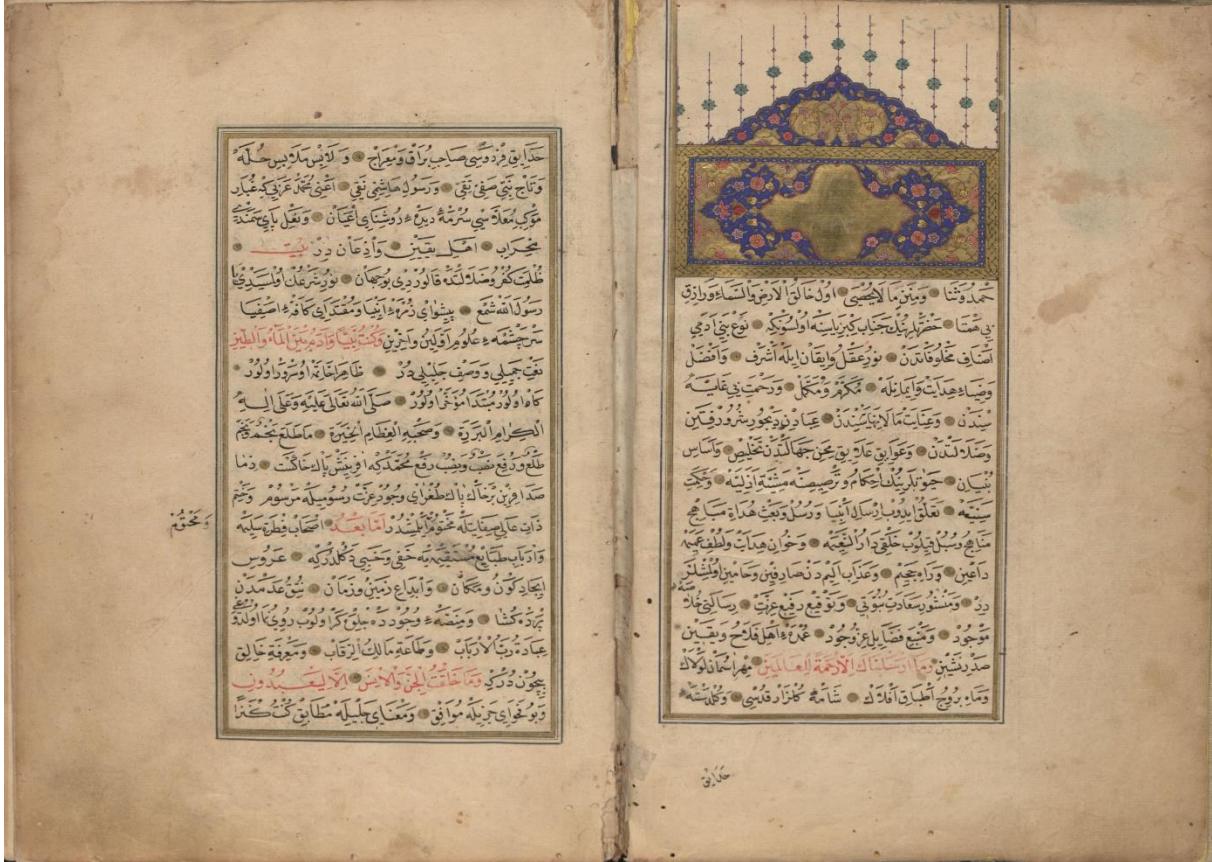 حمد و ثنا و منن ما لا يحصى اول خالق الارض والسماء و رازق
بى همتا حضرتلرينك جناب كبرياسينه اولسونكه نوع بنى آدمى
اصناف مخلوقاتدن نور عقل و ايقان ايله اشرف و افضل
و ضياء هدايت و ايمانله مكرم و مكمل و رحمت بى غايه
سندن و عنايت ما لا نهايه سندن عبادن ديجور شرور و فتن
و ضلالتدن و عوايق علايق محن جهالتدن تخليص و اساس
بنيان احكام مشية ازليه و حكمت
سنيه تعلق ايدوب ارسال انبيا و رسل و بعث هداة مباهج
مناهج و سبل قيلوب خلقى دار النعيمه و خوان هدايت و لطف عميمه
داعين و راه جحيم و عذاب اليمدن صادفين و حامين اولمشلر
در و منشور سعادت نبوتى و توقيع رفيع عزت رسالتى خلاصه
موجود و منبع فضايل عز وجود عمدهء اهل فلاح و يقين
صدرنشين وما ارسلناك الا رحمة للعالمين مهر آسمان لولاك
و ماه بروج اطباق افلاك شامهء كلزار قدسى و كلدستهء
حدايق
حدايق فردوسى صاحب براق و معراج و لابس ملابس حله
و تاج نبى صفى تقى و رسول هاشمى نقى اعنى محمد عربى كه غبار
موكب معلاسى سرمهء ديدهء روشناى اعيان و نعل پاى سمندى
محراب اهل يقين و اذعان در بيت
ظلمت كفر و ضلالتده قالوردى بو جهان نور شرعك اولسيدى يا
رسول الله شمع پيشواى زمرهء انبيا و مقتداى كافهء اصفيا
سرچشمهء علوم اولين و آخرين و كنت نبيا و آدم بين الماء والطين
نعت جميلى و وصف جليلى در ظاهرا خاتم اوسرور اولور
كاه اولور مبتدا مؤخر اولور صلى الله تعالى عليه وعلى اله
الكرام البررة وصحبه العظام الخيرة ما طلع نجم و نجم
طلع و رفع نصب و نصب رفع محمد كه آفرينش پاك خاكست
صد آفرين بر خاك پاك طغراى وجود عزت رسوميله مرسوم و ختم
و مختوم
ذات عالى صفاتيله مختوم قيلمشدر اما بعد اصحاب فطرة سليمه
و ارباب طبايع مستقيمه يه خفى و خبى دكلدركه عروس
ايجاد كون و مكان و ابداع زمين و زمان تتق عدمدن
پرده كشا و منصهء وجودده جلوه كر اولوب روى نما اولدوغى
عبادة رب الارباب و طاعة مالك الرقاب و معرفة خالق
بيچون دركه وما خلقت الجن والانس الا ليعبدون
و بو فحواى جزيله موافق و معناى جليله مطابق كنت كنزا